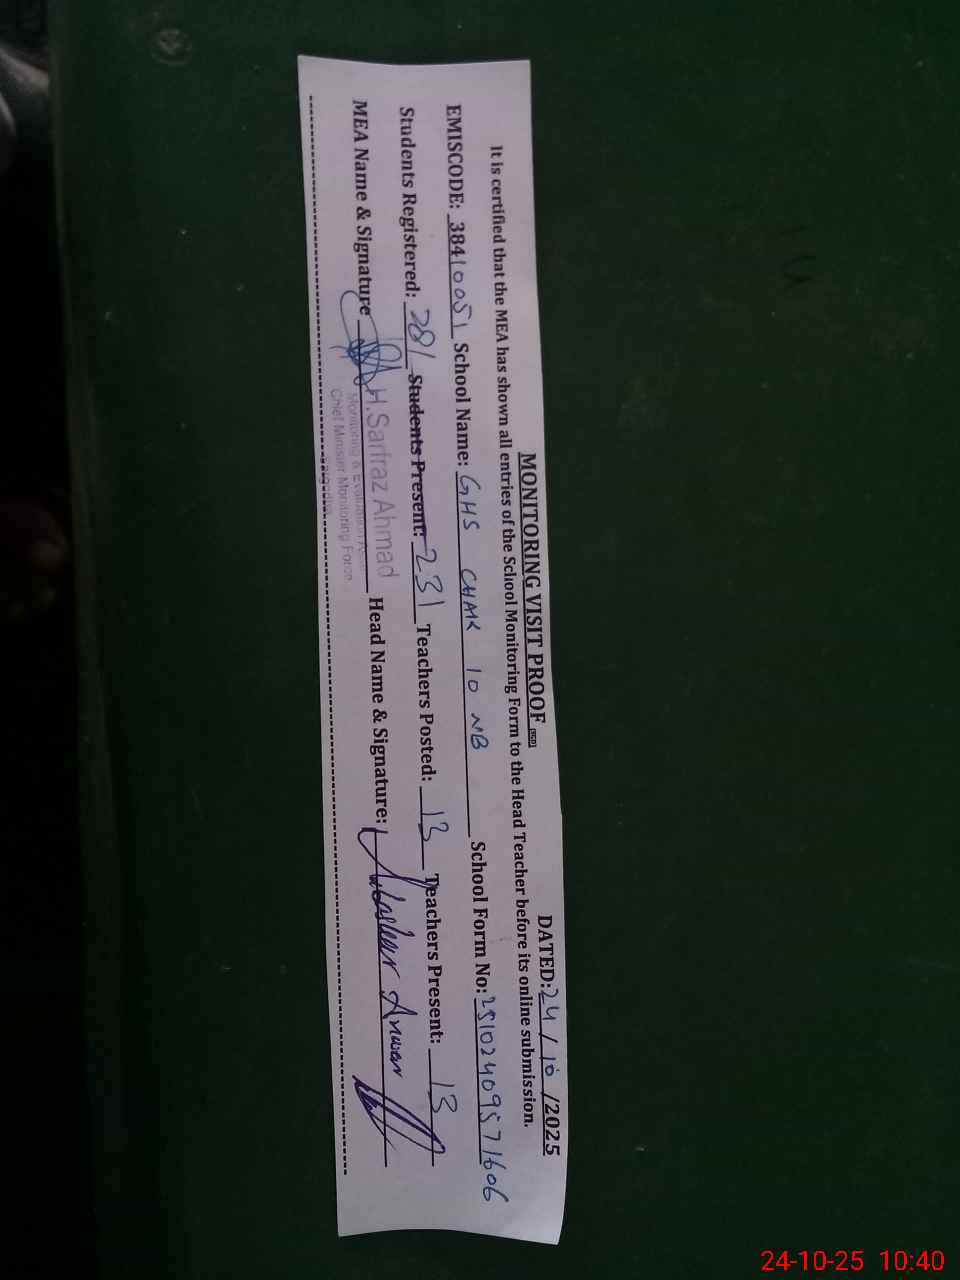 MONITORING VISIT PROOF
DATED: 24/10/2025
It is certified that the MEA has shown all entries of the School Monitoring Form to the Head Teacher before its online submission.
EMISCODE: 38410051 School Name: GHS CHAK 10 NB School Form No: 25102409571606
Students Registered: 281 Students Present: 231 Teachers Posted: 13 Teachers Present: 13
MEA Name & Signature H. Sarfraz Ahmad Head Name & Signature: Anwar
Monitoring & Evaluation
Chief Minister Monitoring Force
Sargodha
24-10-25 10:40